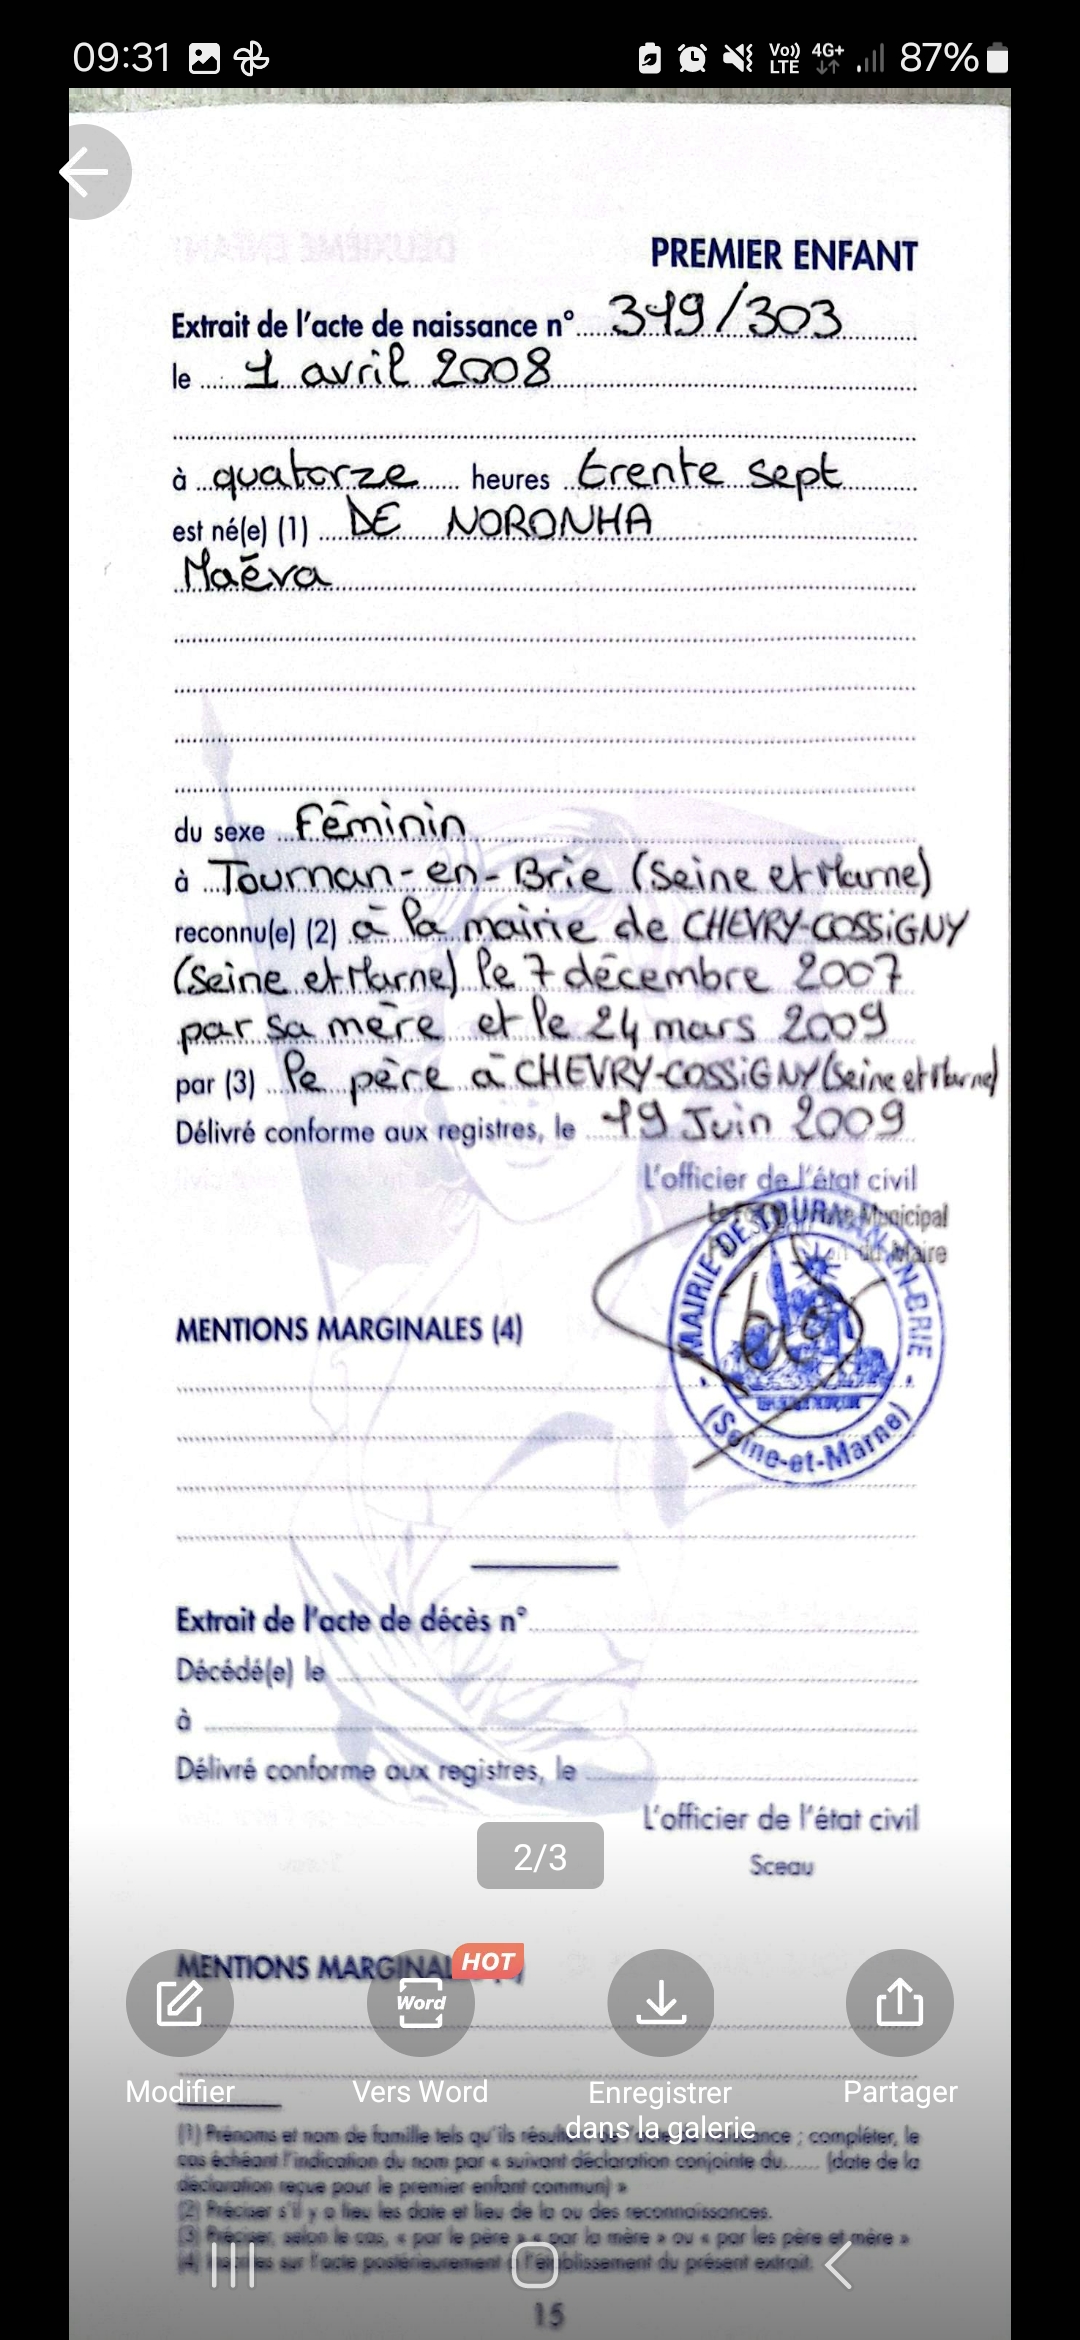 09:31
Vo)) LTE 4G+ 87%
PREMIER ENFANT
Extrait de l'acte de naissance n° 319/303
le 1 avril 2008
à quatorze heures trente sept
est né(e) (1) DE NORONHA
Maéva
du sexe Féminin
à Tournan-en-Brie (Seine et Marne)
reconnu(e) (2) à la mairie de CHEVRY-COSSIGNY
(Seine et Marne) le 7 décembre 2007
par sa mère et le 24 mars 2009
par (3) le père à CHEVRY-COSSIGNY (Seine et Marne)
Délivré conforme aux registres, le 19 Juin 2009
L'officier de l'état civil
Municipal
du Maire
MAIRIE DE TOURNAN-EN-BRIE
(Seine-et-Marne)
MENTIONS MARGINALES (4)
Extrait de l'acte de décès n°
Décédé(e) le
à
Délivré conforme aux registres, le
L'officier de l'état civil
2/3
Sceau
MENTIONS MARGINAL
HOT
Word
Modifier
Vers Word
Enregistrer dans la galerie
Partager
(1) Prénoms et nom de famille tels qu'ils ; compléter, le
cas échéant l'indication du nom par « suivant déclaration conjointe du...... (date de la
déclaration reçue pour le premier enfant commun) »
(2) Préciser s'il y a lieu les date et lieu de la ou des reconnaissances.
(3) Préciser, selon le cas, « par le père » « par la mère » ou « par les père et mère »
(4) sur l'acte postérieurement à l'établissement du présent extrait.
15